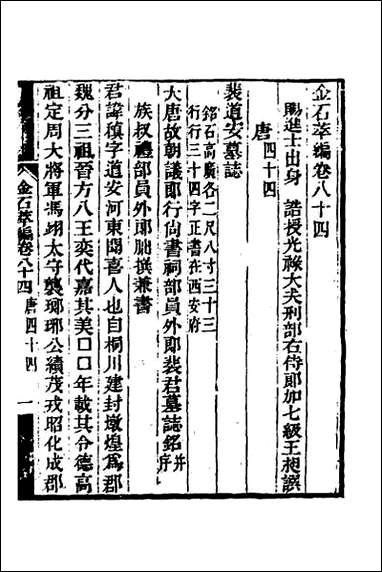 金石萃編卷八十四
賜進士出身 誥授光祿大夫刑部右侍郎加七級王昶譔
唐四十四
裴道安墓誌
銘石高廣各二尺八寸三十三
行行三十四字正書在西安府
大唐故朝議郎行尙書祠部員外郎裴君墓誌銘并序
族叔禮部員外郎朏撰兼書
君諱稹字道安河東聞喜人也自桐川建封燉煌爲郡
魏分三祖晉方八王奕代嘉其美□□年載其令德高
祖定周大將軍馮翊太守襲瑯琊公纘茂戎昭化成郡
金石萃編卷八十四 唐四十四 一